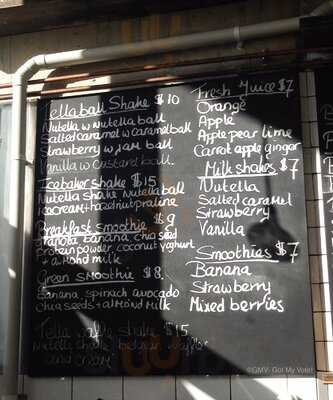 Tellaball Shake $10
Nutella w Nutella ball
Salted caramel w caramel ball
Strawberry w jam ball
Vanilla w Custard ball
Icebaker shake $15
Nutella Shake Nutella ball
icecream hazelnut praline
Breakfast smoothie $9
banana chia seed
protein powder coconut yoghurt
almond milk
Green smoothie $8
Banana, spinach avocado
chia seeds + almond milk
Tella waffle shake $15
Nutella shake belgian waffle
and cream
Fresh Juice $7
Orange
Apple
Apple pear lime
Carrot apple ginger
Milkshakes $7
Nutella
Salted caramel
Strawberry
Vanilla
Smoothies $7
Banana
Strawberry
Mixed berries
©GMV- Got My Vote!